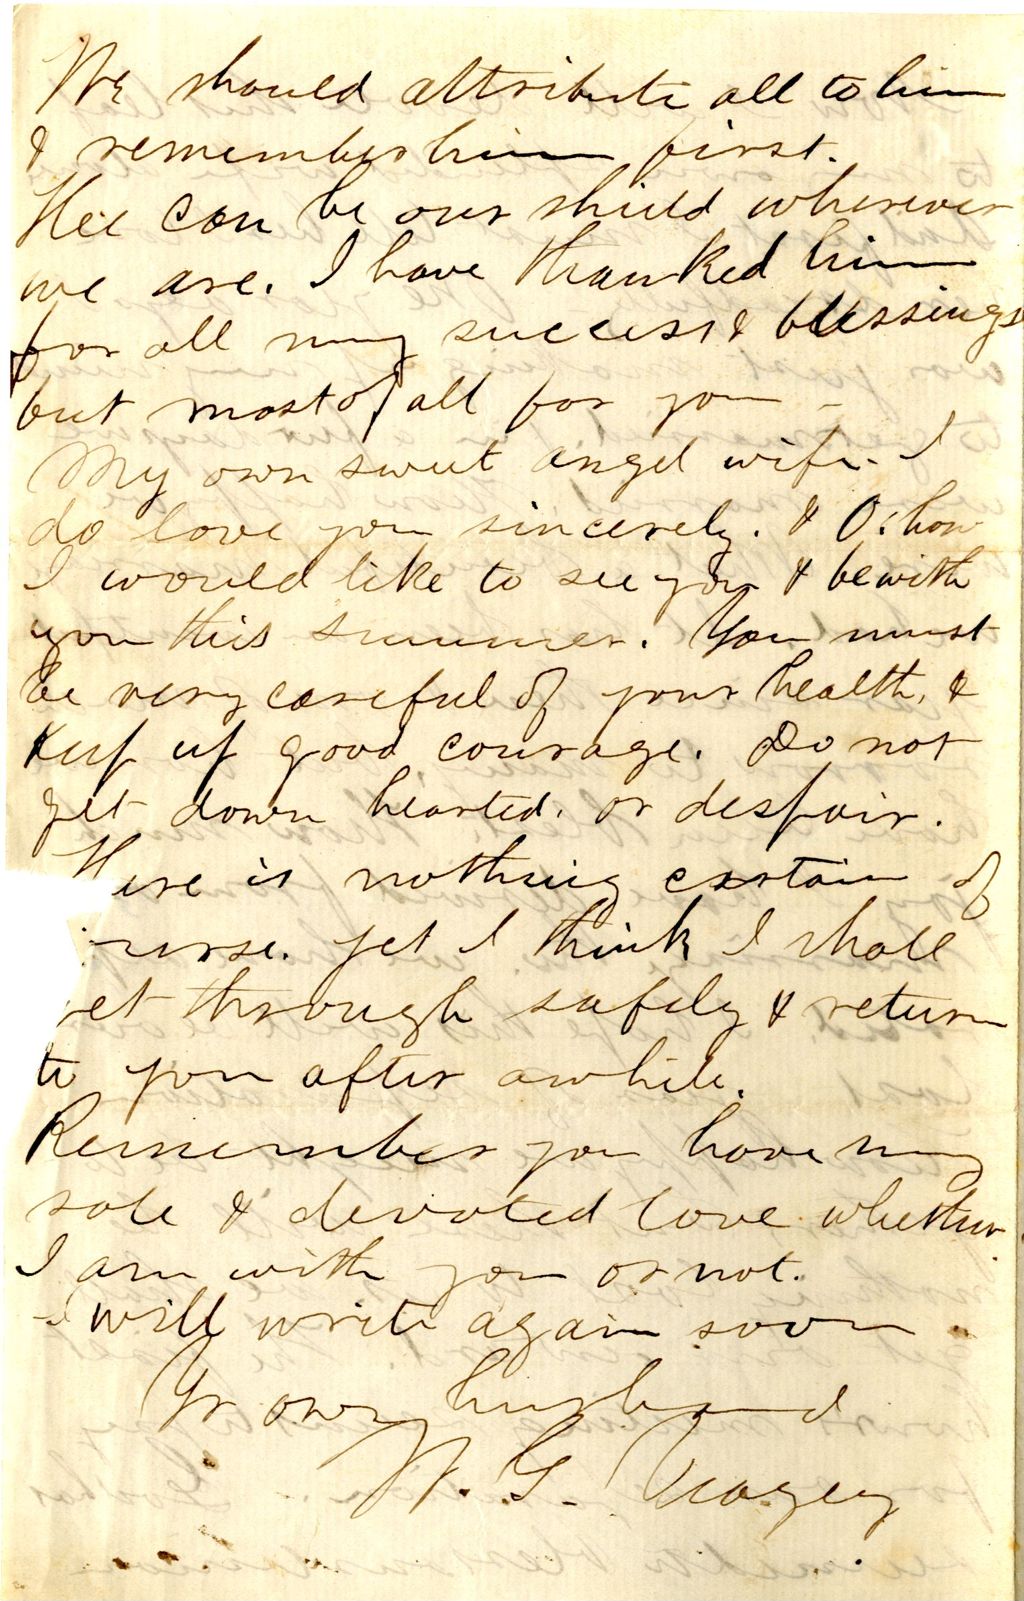 We should attribute all to him
& remember him first.
Hee can be our shield wherever
we are. I have thanked him
for all my success & blessings
but most of all for you -
My own sweet angel wife. I
do love you sincerely. & O: how
I would like to see you & be with
you this summer. You must
be very careful of your health, &
Keep up good courage. Do not
get down hearted. or despair.
There is nothing certain of
urse. yet I think I shall
et through safely & return
to you after awhile.
Remember you have my
sole & devoted love whether
I am with you or not.
I will write again soon
Yr own husband
W. G. Veazey